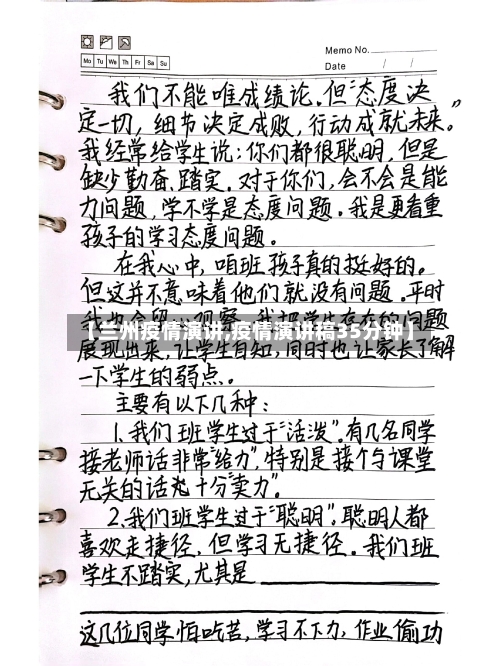 Memo No.
Mo Tu We Th Fr Sa Su
Date / /
我们不能唯成绩论。但“态度决
定一切，细节决定成败，行动成就未来。”
我经常给学生说：你们都很聪明，但是
缺少勤奋、踏实。对于你们，会不会是能
力问题，学不学是态度问题。我是更看重
孩子的学习态度问题。
在我心中，咱班孩子真的挺好的。
但这并不意味着他们就没有问题。平时
我也会留心观察，我把学生存在的问题
【兰州疫情演讲,疫情演讲稿35分钟】
展现出来，让学生自知，同时也让家长了解
一下学生的弱点。
主要有以下几种：
1、我们班学生过于“活泼”。有几名同学
接老师话非常“给力”，特别是接个与课堂
无关的话尤十分“卖力”。
2、我们班学生过于“聪明”。聪明人都
喜欢走捷径，但学习无捷径。我们班
学生不踏实，尤其是
这几位同学怕吃苦，学习不下力，作业偷功